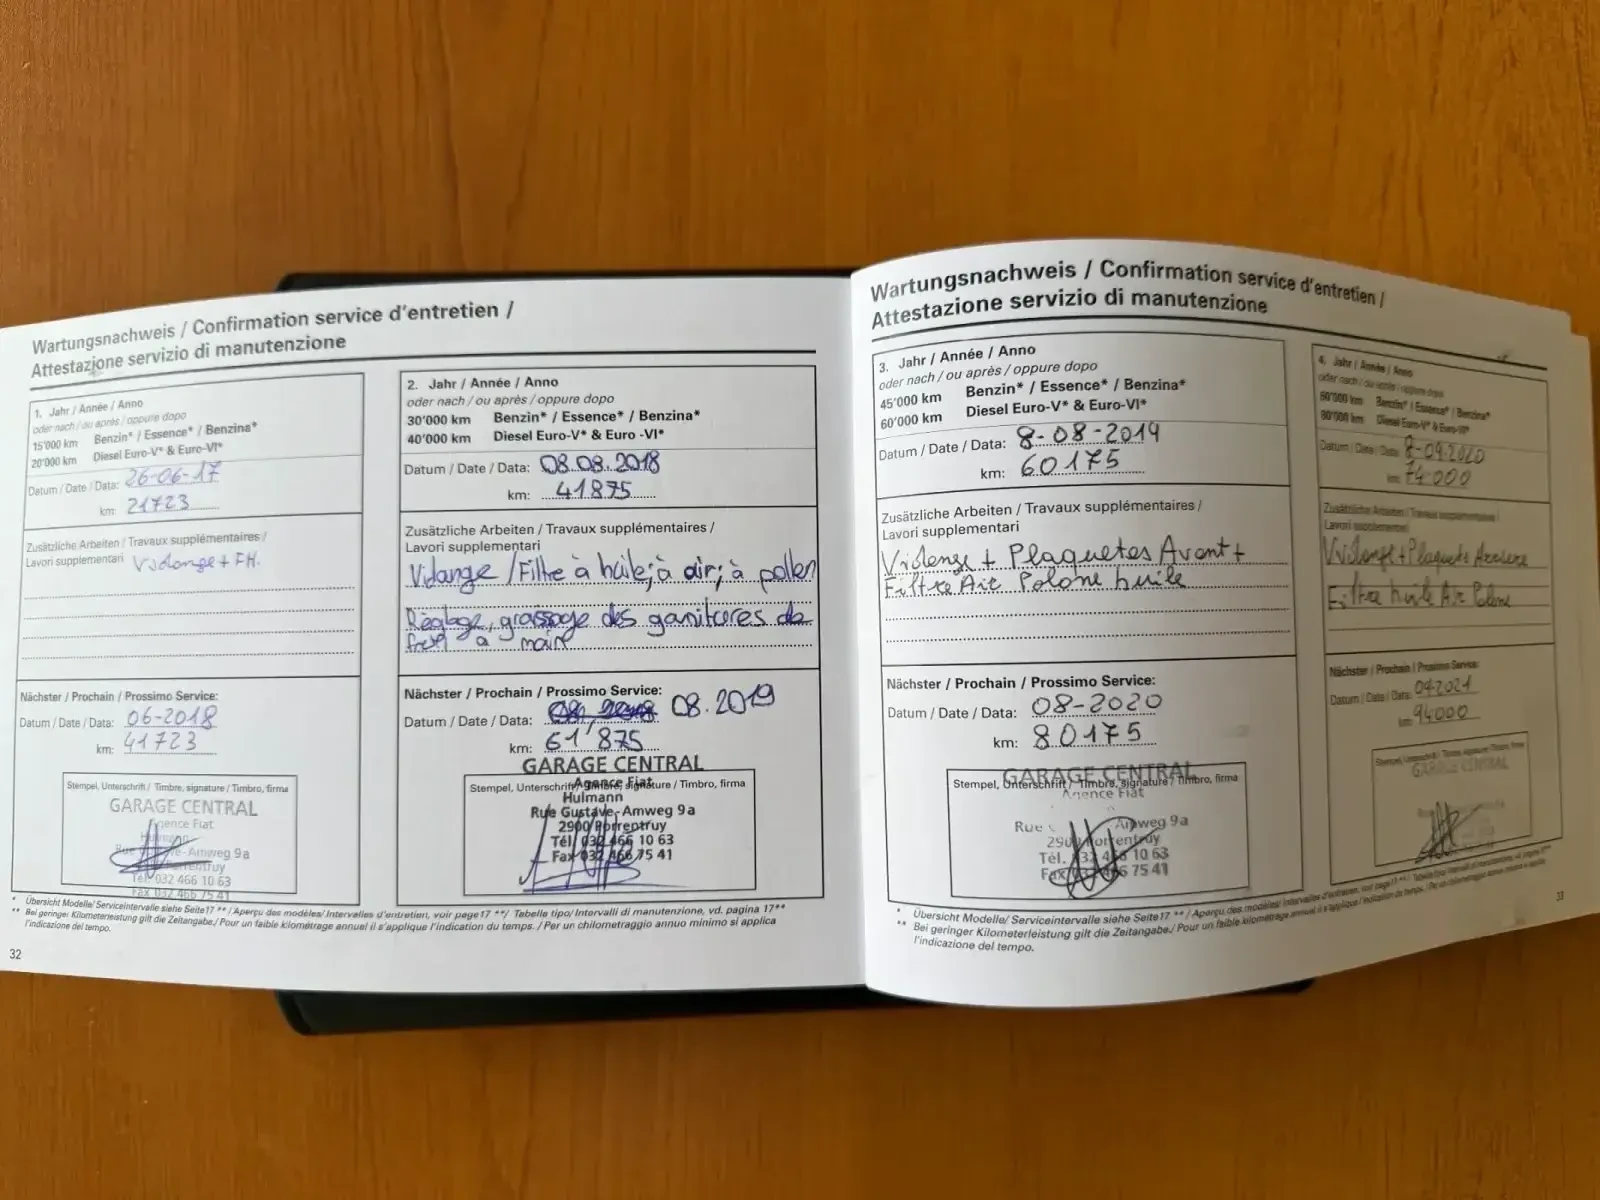 Wartungsnachweis / Confirmation service d'entretien /
Attestazione servizio di manutenzione
1. Jahr / Année / Anno
oder nach / ou après / oppure dopo
15'000 km Benzin* / Essence* / Benzina*
20'000 km Diesel Euro-V* & Euro-VI*
Datum / Date / Data: 26-06-17
km: 21723
Zusätzliche Arbeiten / Travaux supplémentaires /
Lavori supplementari Vidange + FH.
Nächster / Prochain / Prossimo Service:
Datum / Date / Data: 06-2018
km: 41723
Stempel, Unterschrift / Timbre, signature / Timbro, firma
GARAGE CENTRAL
Agence Fiat
Rue -Amweg 9a
Tél. 032 466 10 63
Fax 032 466 75 41
2. Jahr / Année / Anno
oder nach / ou après / oppure dopo
30'000 km Benzin* / Essence* / Benzina*
40'000 km Diesel Euro-V* & Euro -VI*
Datum / Date / Data: 08.08.2018
km: 41875
Zusätzliche Arbeiten / Travaux supplémentaires /
Lavori supplementari
Vidange / Filtre à huile; à air; à pollen
Réglage, graissage des garnitures de
frein à main
Nächster / Prochain / Prossimo Service:
Datum / Date / Data: 08.2019
km: 61'875
GARAGE CENTRAL
Agence Fiat
Stempel, Unterschrift / Timbre, signature / Timbro, firma
Hulmann
Rue Gustave-Amweg 9a
2900 Porrentruy
Tél. 032 466 10 63
Fax 032 466 75 41
* Übersicht Modelle/ Serviceintervalle siehe Seite17 ** / Aperçu des modèles/ Intervalles d'entretien, voir page17 **/ Tabelle tipo/ Intervalli di manutenzione, vd. pagina 17**
** Bei geringer Kilometerleistung gilt die Zeitangabe./ Pour un faible kilométrage annuel il s'applique l'indication du temps. / Per un chilometraggio annuo minimo si applica
l'indicazione del tempo.
32
Wartungsnachweis / Confirmation service d'entretien /
Attestazione servizio di manutenzione
3. Jahr / Année / Anno
oder nach / ou après / oppure dopo
45'000 km Benzin* / Essence* / Benzina*
60'000 km Diesel Euro-V* & Euro-VI*
Datum / Date / Data: 8-08-2019
km: 60175
Zusätzliche Arbeiten / Travaux supplémentaires /
Lavori supplementari
Vidange + Plaquetes Avant +
Filtre Air Polene huile
Nächster / Prochain / Prossimo Service:
Datum / Date / Data: 08-2020
km: 80175
GARAGE CENTRAL
Stempel, Unterschrift / Timbre, signature / Timbro, firma
Agence Fiat
Rue Amweg 9a
2900 Porrentruy
Tél. 032 466 10 63
Fax 032 466 75 41
4. Jahr / Année / Anno
oder nach / ou après / oppure dopo
60'000 km Benzin* / Essence* / Benzina*
80'000 km Diesel Euro-V* & Euro-VI*
Datum / Date / Data: 8-09-2020
km: 74000
Zusätzliche Arbeiten / Travaux supplémentaires /
Lavori supplementari
Vidange + Plaquets Arriere
Filtre huile Air Polene
Nächster / Prochain / Prossimo Service:
Datum / Date / Data: 092021
km: 94000
Stempel, Unterschrift / Timbre, signature / Timbro, firma
GARAGE CENTRAL
* Übersicht Modelle/ Serviceintervalle siehe Seite17 ** / Aperçu des modèles/ Intervalles d'entretien, voir page17 **/ Tabelle tipo/ Intervalli di manutenzione, vd. pagina 17**
** Bei geringer Kilometerleistung gilt die Zeitangabe./ Pour un faible kilométrage annuel il s'applique l'indication du temps. / Per un chilometraggio annuo minimo si applica
l'indicazione del tempo.
33